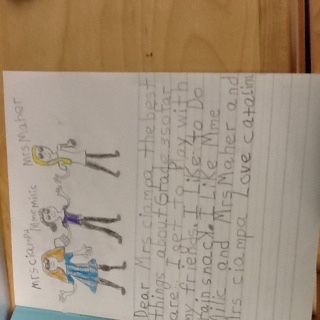 Mrs ciampa Mme Milic Mrs Maher
Dear Mrs ciampa the best
things about Grade 3 so far
are I get to play with
my friends. I Like To Do
snack. I Like Mme
Milic and Mrs Maher and
Mrs ciampa Love catalin